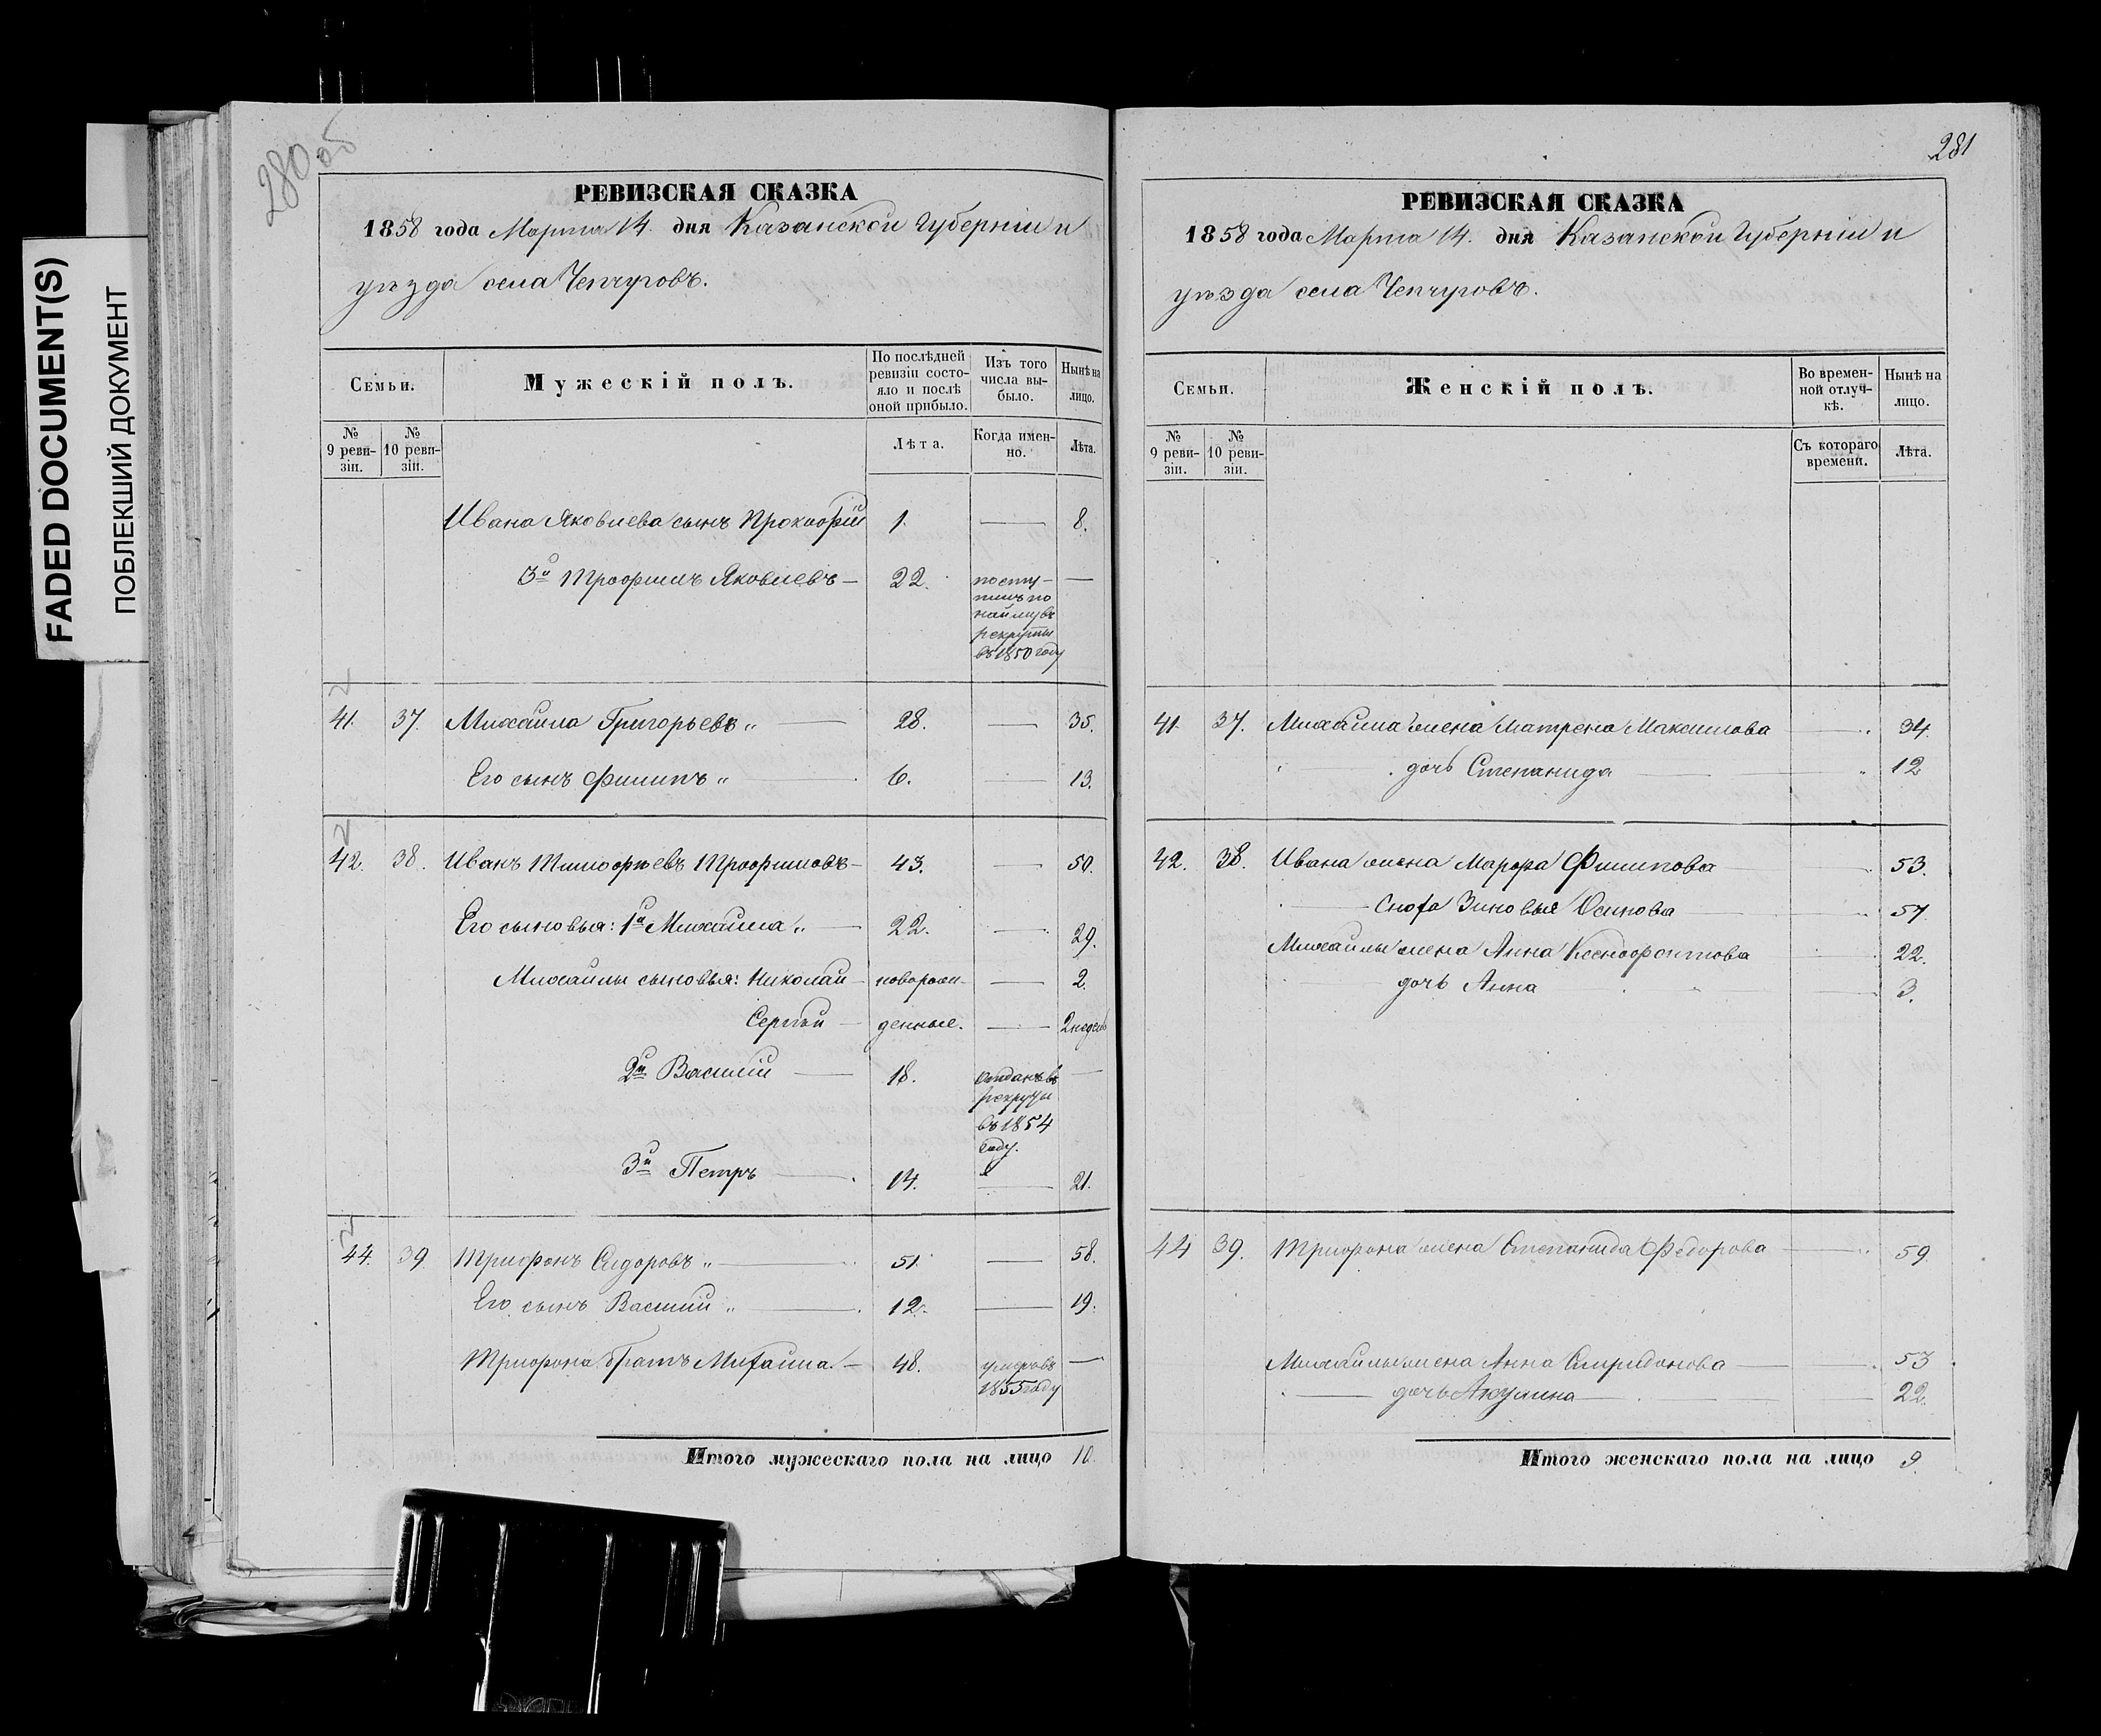 FADED DOCUMENT(S)
ПОБЛЕКШИЙ ДОКУМЕНТ
280 об
РЕВИЗСКАЯ СКАЗКА
1858 года Марта 14. дня Казанской Губерніи и
уѣзда села Чепчуговъ.
Семьи.
Мужескій полъ.
По послѣдней ревизіи состояло и послѣ оной прибыло.
Изъ того числа выбыло.
Нынѣ на лицо.
№ 9 ревизіи.
№ 10 ревизіи.
Лѣта.
Когда именно.
Лѣта.
Ивана Яковлева сынъ Прокофій 1. — 8.
3й Трофимъ Яковлевъ — 22. посту-
пилъ по
найму въ
рекруты
въ 1850 году —
41. 37. Михаила Григорьевъ „ — 28. — 35.
Его сынъ Филипъ „ — 6. — 13.
42. 38. Иванъ Тимофѣевъ Трофимовъ — 43. — 50.
Его сыновья: 1й Михаила „ — 22. — 29.
Михаилы сыновья: Николай — новорож- — 2.
Сергѣй — денные. — 2 недели
2й Василій — 18. отданъ въ —
рекруты
въ 1854
году.
3й Петръ — 14. — 21.
44. 39. Трифонъ Сидоровъ „ — 51. — 58.
Его сынъ Василій „ — 12. — 19.
Трифона братъ Михаила — 48. умеръ въ —
1855 году
Итого мужескаго пола на лицо 10.
281
РЕВИЗСКАЯ СКАЗКА
1858 года Марта 14. дня Казанской Губерніи и
уѣзда села Чепчуговъ.
Семьи.
Женскій полъ.
Во временной отлучкѣ.
Нынѣ на лицо.
№ 9 ревизіи.
№ 10 ревизіи.
Съ котораго времени.
Лѣта.
41. 37. Михаила жена Матрена Максимова — 34.
дочь Степанида — 12
42. 38. Ивана жена Марфа Филипова — 53.
— Сноха Зиновья Осипова — 57
Михаилы жена Анна Ксенофонтова — 22.
— дочь Анна — 3.
44 39. Трифона жена Степанида Федорова — 59.
Михаилы жена Анна Спиридонова — 53
— дочь Акулина — 22.
Итого женскаго пола на лицо 9.